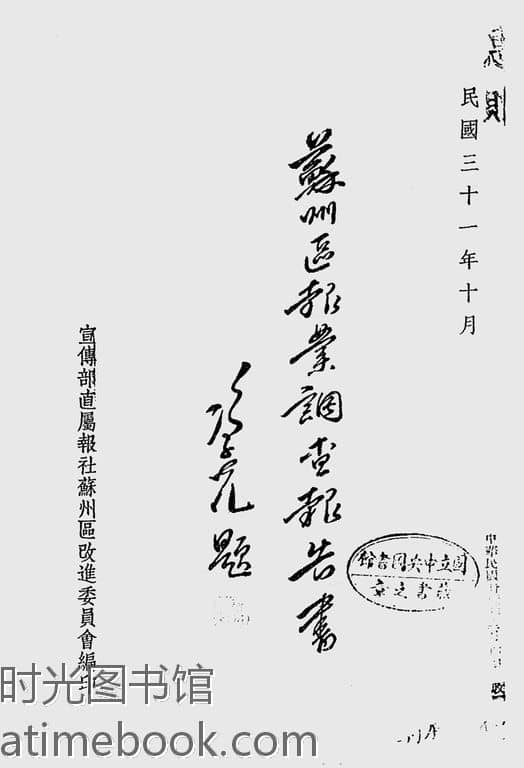 民國三十一年十月
蘇州區報業調查報告書
題
宣傳部直屬報社蘇州區改進委員會編印
國立中央圖書館
藏書之章
中華民國
时光图书馆
atimebook.com